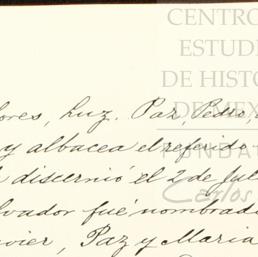 CENTRO
ESTUDI
DE HISTO
DE MEX
FUNDA
Carlos
lores, Luz. Paz, Pedro,
y albacea el referido
discernió el 2 de Jul
lvador fué nombrado
avier, Paz y Maria